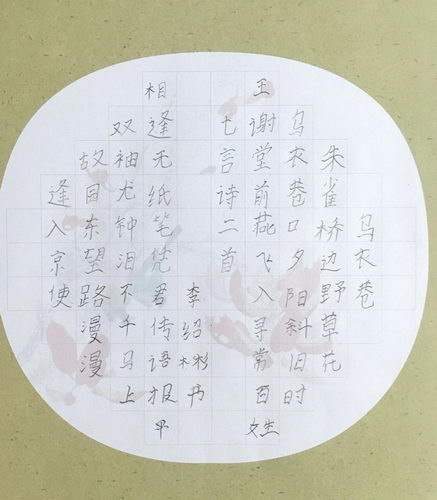 乌衣巷
朱雀桥边野草花
乌衣巷口夕阳斜旧时
王谢堂前燕飞入寻常百姓
七言诗二首
逢入京使
故园东望路漫漫
双袖尤钟泪不干马上
相逢无纸笔凭君传语报平
李绍彬书